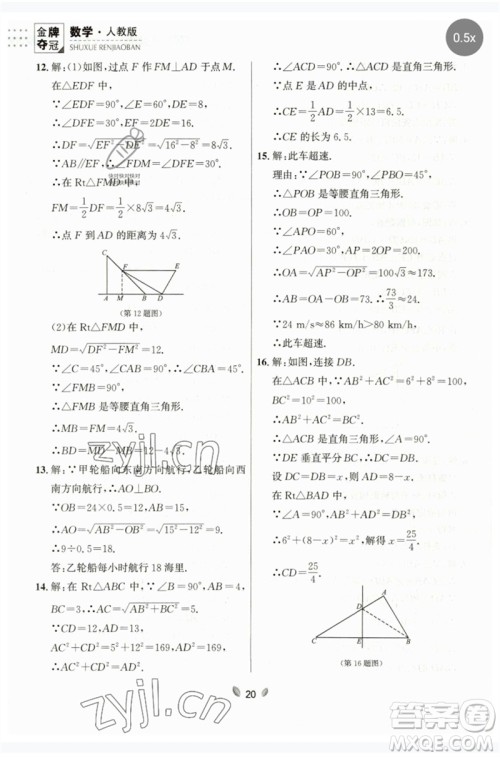 金牌夺冠
数学·人教版
SHUXUE RENJIAOBAN
0.5x
12. 解:(1)如图,过点 F 作 FM⊥AD 于点 M.
在△EDF 中,
∵∠EDF=90°,∠E=30°,
∴∠DFE=30°,∠EFD=60°
∴DF=√(EF²-DE²)=√(16²-8²)=8√3.
∵AB∥EF,∴∠FDM=∠DFE=30°.
∴在 Rt△FMD 中,
FM=1/2DF=1/2×8√3=4√3.
∴点 F 到 AD 的距离为 4√3.
F
E
A
M
B
D
(第 12 题图)
(2)在 Rt△FMD 中,
MD=√(DF²-FM²)=12.
∵∠C=45°,∠CAB=90°,
∴∠CBA=45°.
又∵∠FMB=90°,
∴△FMB 是等腰直角三角形.
∴MB=FM=4√3.
∴BD=MD-MB=12-4√3.
13. 解:∵甲轮船向东南方向航行,乙轮船向西
南方向航行,∴AO⊥BO.
∵OB=24×0.5=12,
∴AO=√(AB²-OB²)=√(15²-12²)=9.
∴9÷0.5=18.
答:乙轮船每小时航行 18 海里.
14. 解:在 Rt△ABC 中,∵∠B=90°,AB=4,
BC=3,∴AC=√(AB²+BC²)=5.
∵CD=12,AD=13,
AC²+CD²=5²+12²=169,
AD²=13²=169,
∴AC²+CD²=AD².
∴∠ACD=90°.
∴△ACD 是直角三角形.
∵点 E 是 AD 的中点,
∴CE=1/2AD=1/2×13=6.5.
∴CE 的长为 6.5.
15. 解:此车超速.
理由:∵∠POB=90°,∠PBO=45°,
∴△POB 是等腰直角三角形.
∴OB=OP=100.
∵∠APO=60°,
∴∠PAO=30°.
∴OA=√(AP²-OP²)=√(200²-100²)≈173.
∴AB=OA-OB=73.
∴此车的速度≈73/3≈24(m/s).
∵24 m/s≈86 km/h>80 km/h,
∴此车超速.
16. 解:如图,连接 DB.
在△ACB 中,∵AB²+AC²=6²+8²=100,
BC²=10²=100,
∴AB²+AC²=BC².∴∠A=90°.
∵DE 垂直平分 BC,∴DC=DB.
设 DC=DB=x,则 AD=8-x.
在 Rt△BAD 中,
∵∠A=90°,∴AB²+AD²=BD².
∴6²+(8-x)²=x².解得 x=25/4.
∴CD=25/4.
A
D
C
E
B
(第 16 题图)
20
zyjl.cn
zyjl.cn
作业精灵
答案圈
MXQE.COM